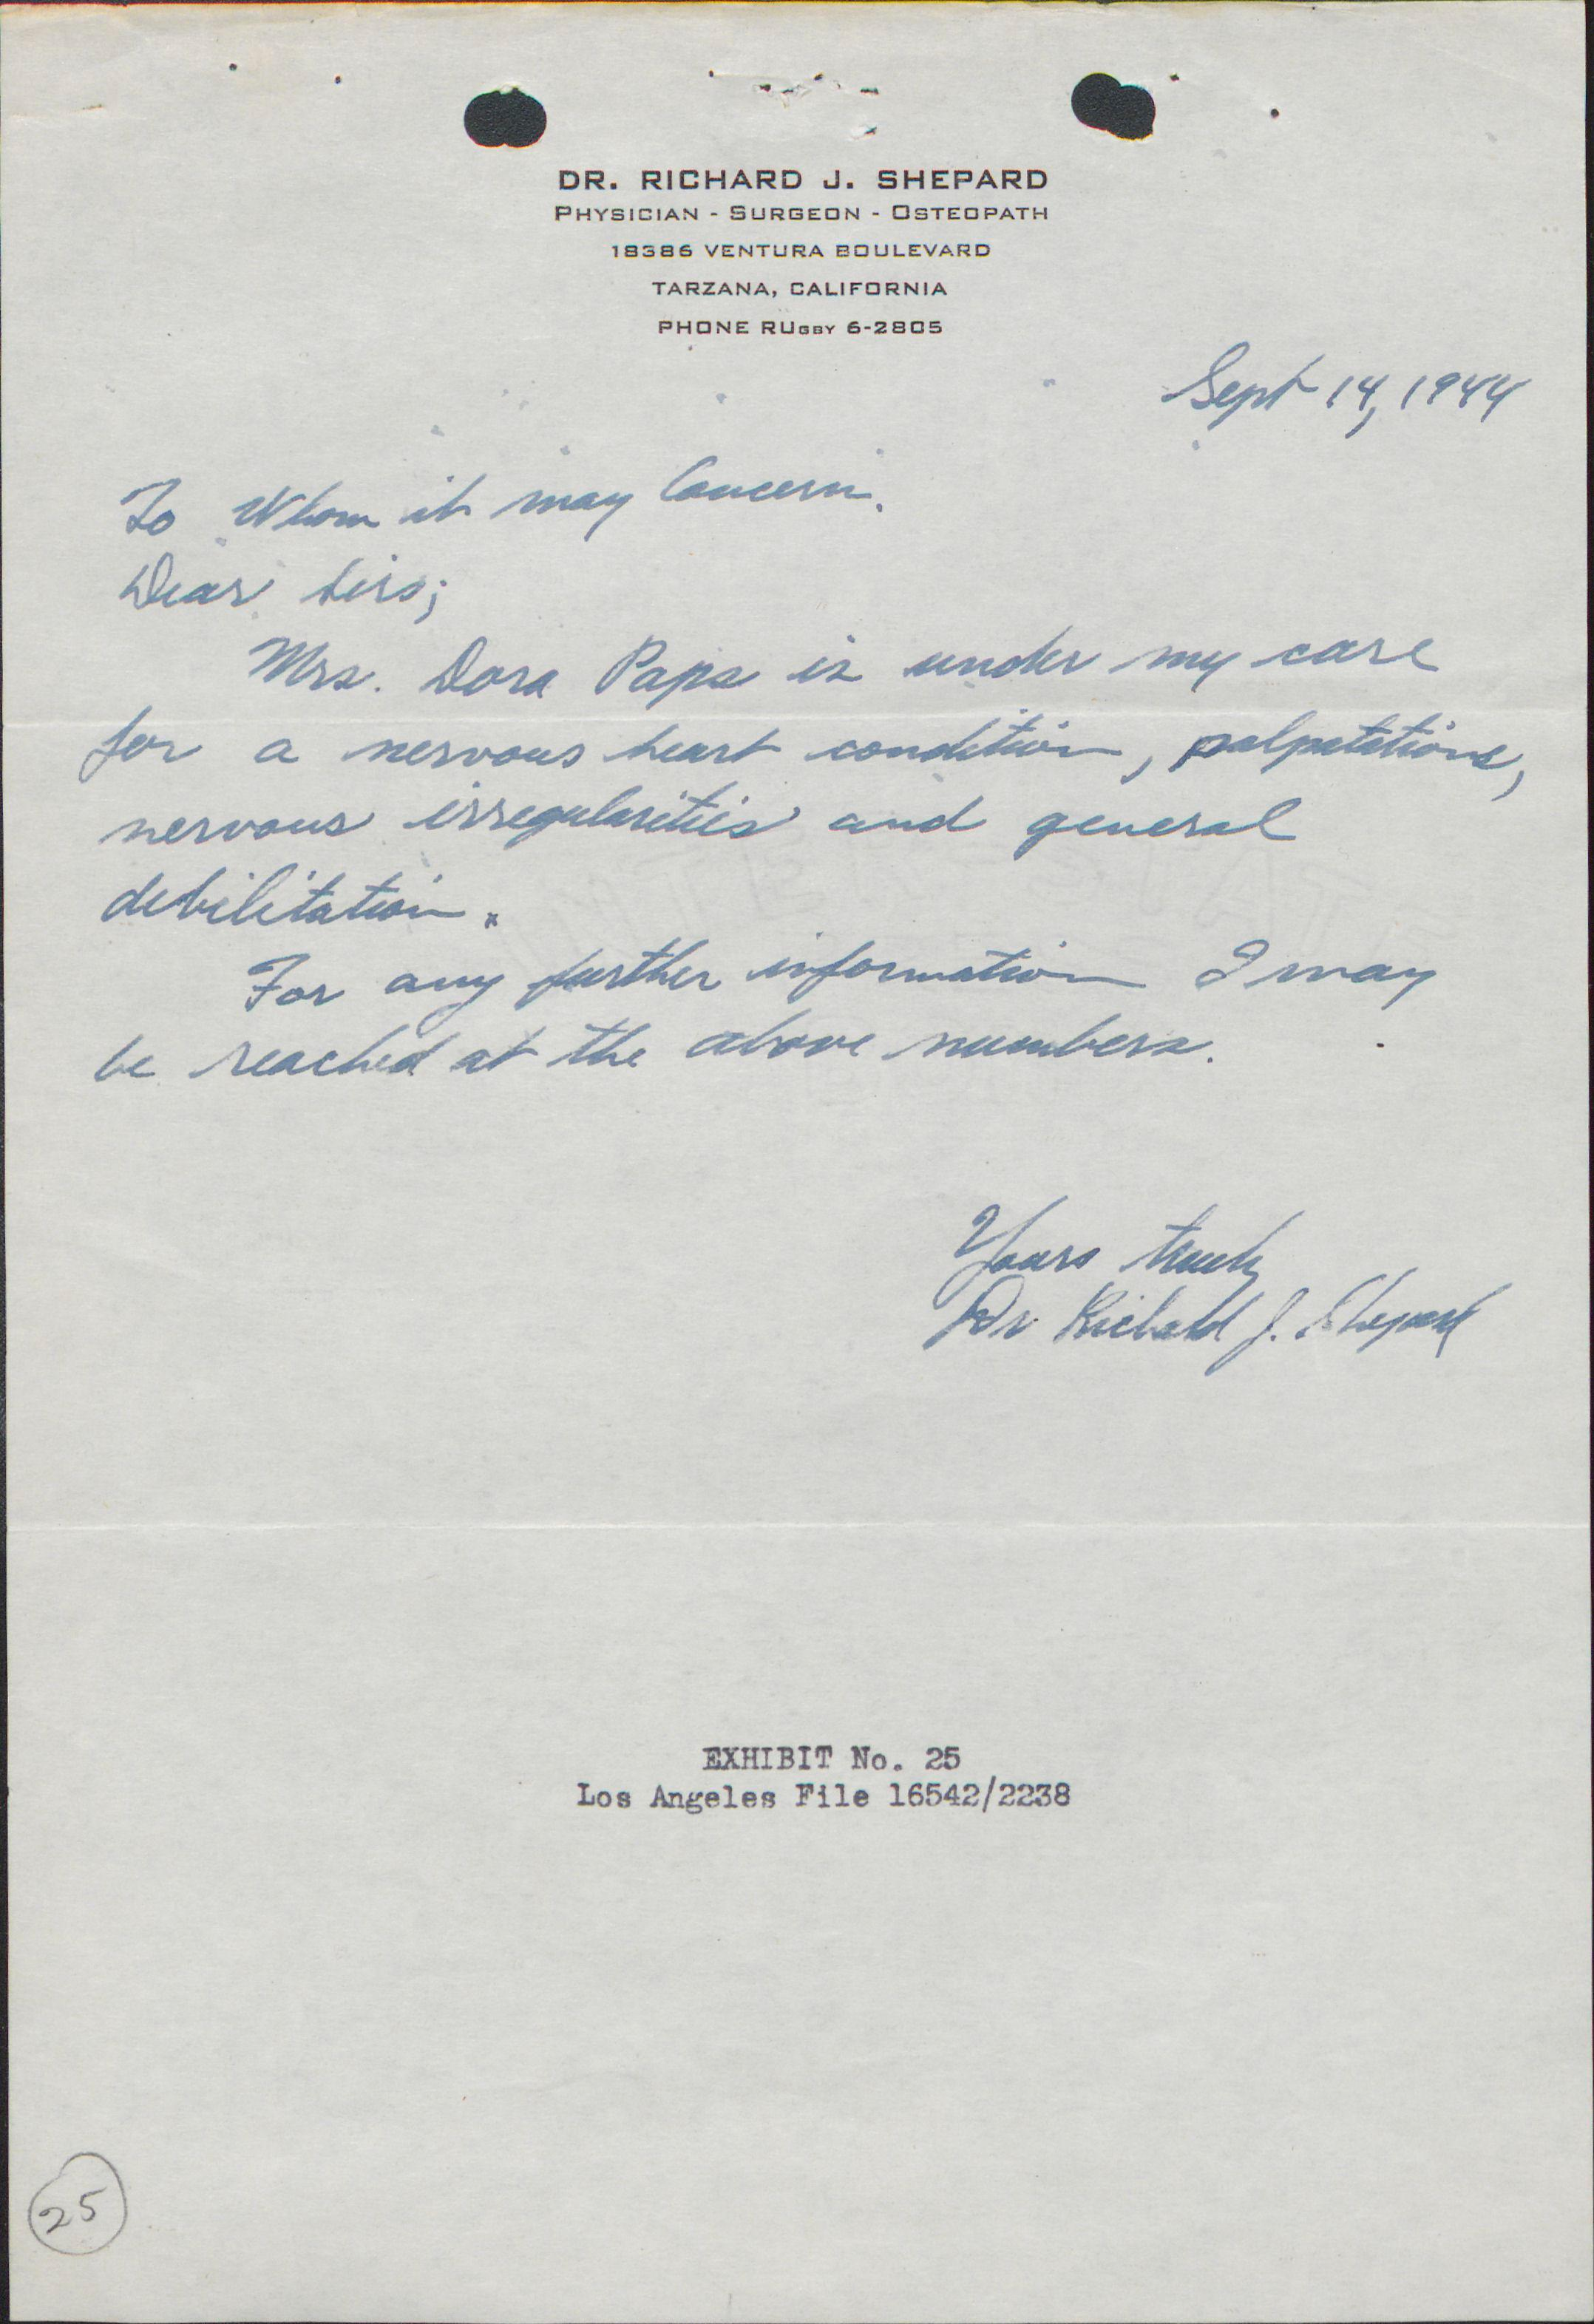 DR. RICHARD J. SHEPARD
PHYSICIAN - SURGEON - OSTEOPATH
18386 VENTURA BOULEVARD
TARZANA, CALIFORNIA
PHONE RUGBY 6-2805
Sept 14, 1944
To Whom it may Concern.
Dear Sirs;
Mrs. Dora Papa is under my care
for a nervous heart condition, palpatations,
nervous irregularities and general
debilitation.
For any further information I may
be reached at the above numbers.
Yours truly
Dr Richard J. Shepard
EXHIBIT No. 25
Los Angeles File 16542/2238
25